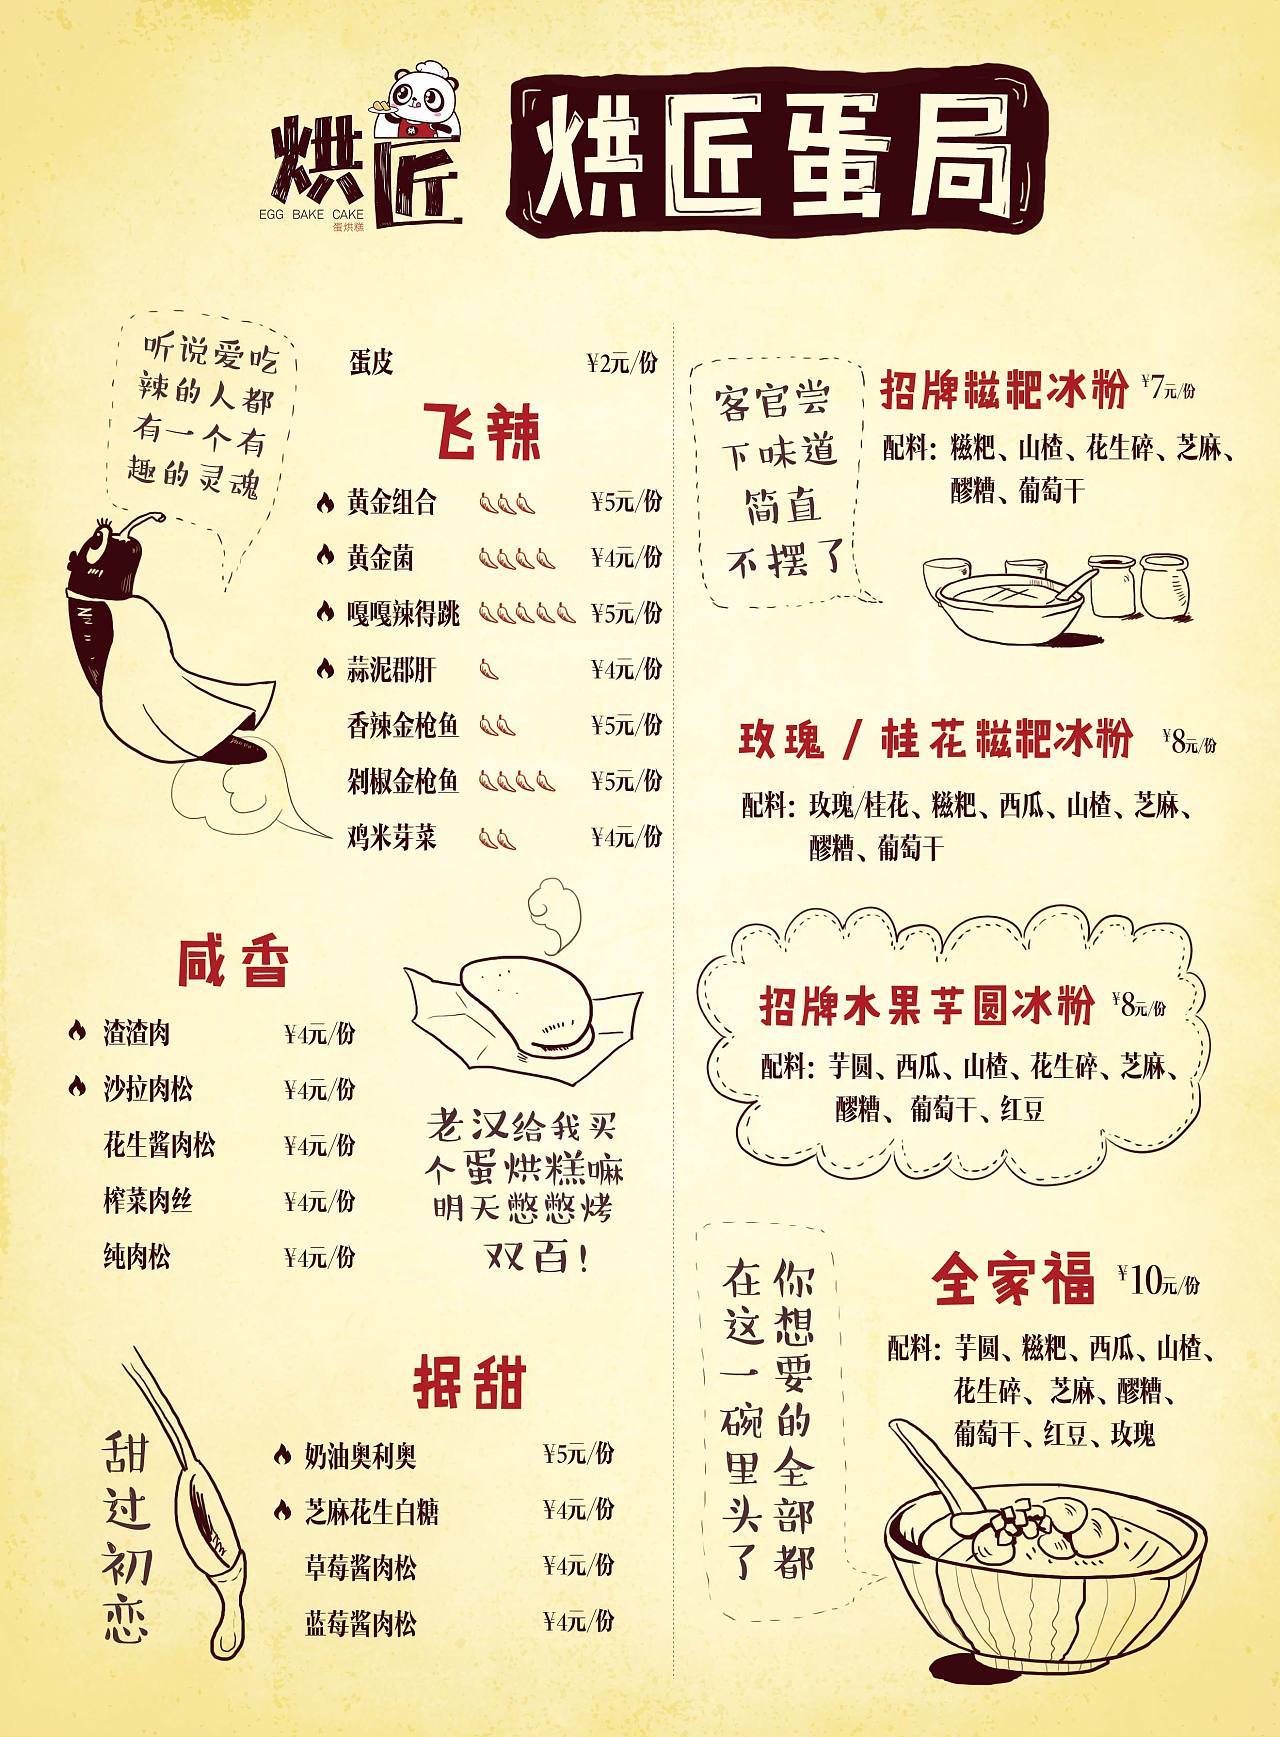 烘匠
EGG BAKE CAKE
蛋烘糕
烘
烘匠蛋局
听说爱吃
辣的人都
有一个有
趣的灵魂
蛋皮 ¥2元/份
飞辣
黄金组合 ¥5元/份
黄金菌 ¥4元/份
嘎嘎辣得跳 ¥5元/份
蒜泥郡肝 ¥4元/份
香辣金枪鱼 ¥5元/份
剁椒金枪鱼 ¥5元/份
鸡米芽菜 ¥4元/份
咸香
渣渣肉 ¥4元/份
沙拉肉松 ¥4元/份
花生酱肉松 ¥4元/份
榨菜肉丝 ¥4元/份
纯肉松 ¥4元/份
老汉给我买
个蛋烘糕嘛
明天憋憋烤
双百！
抿甜
奶油奥利奥 ¥5元/份
芝麻花生白糖 ¥4元/份
草莓酱肉松 ¥4元/份
蓝莓酱肉松 ¥4元/份
甜过初恋
客官尝
下味道
简直
不摆了
招牌糍粑冰粉 ¥7元/份
配料：糍粑、山楂、花生碎、芝麻、
醪糟、葡萄干
玫瑰/桂花糍粑冰粉 ¥8元/份
配料：玫瑰/桂花、糍粑、西瓜、山楂、芝麻、
醪糟、葡萄干
招牌水果芋圆冰粉 ¥8元/份
配料：芋圆、西瓜、山楂、花生碎、芝麻、
醪糟、葡萄干、红豆
你想要的全部都
在这一碗里头了
全家福 ¥10元/份
配料：芋圆、糍粑、西瓜、山楂、
花生碎、芝麻、醪糟、
葡萄干、红豆、玫瑰